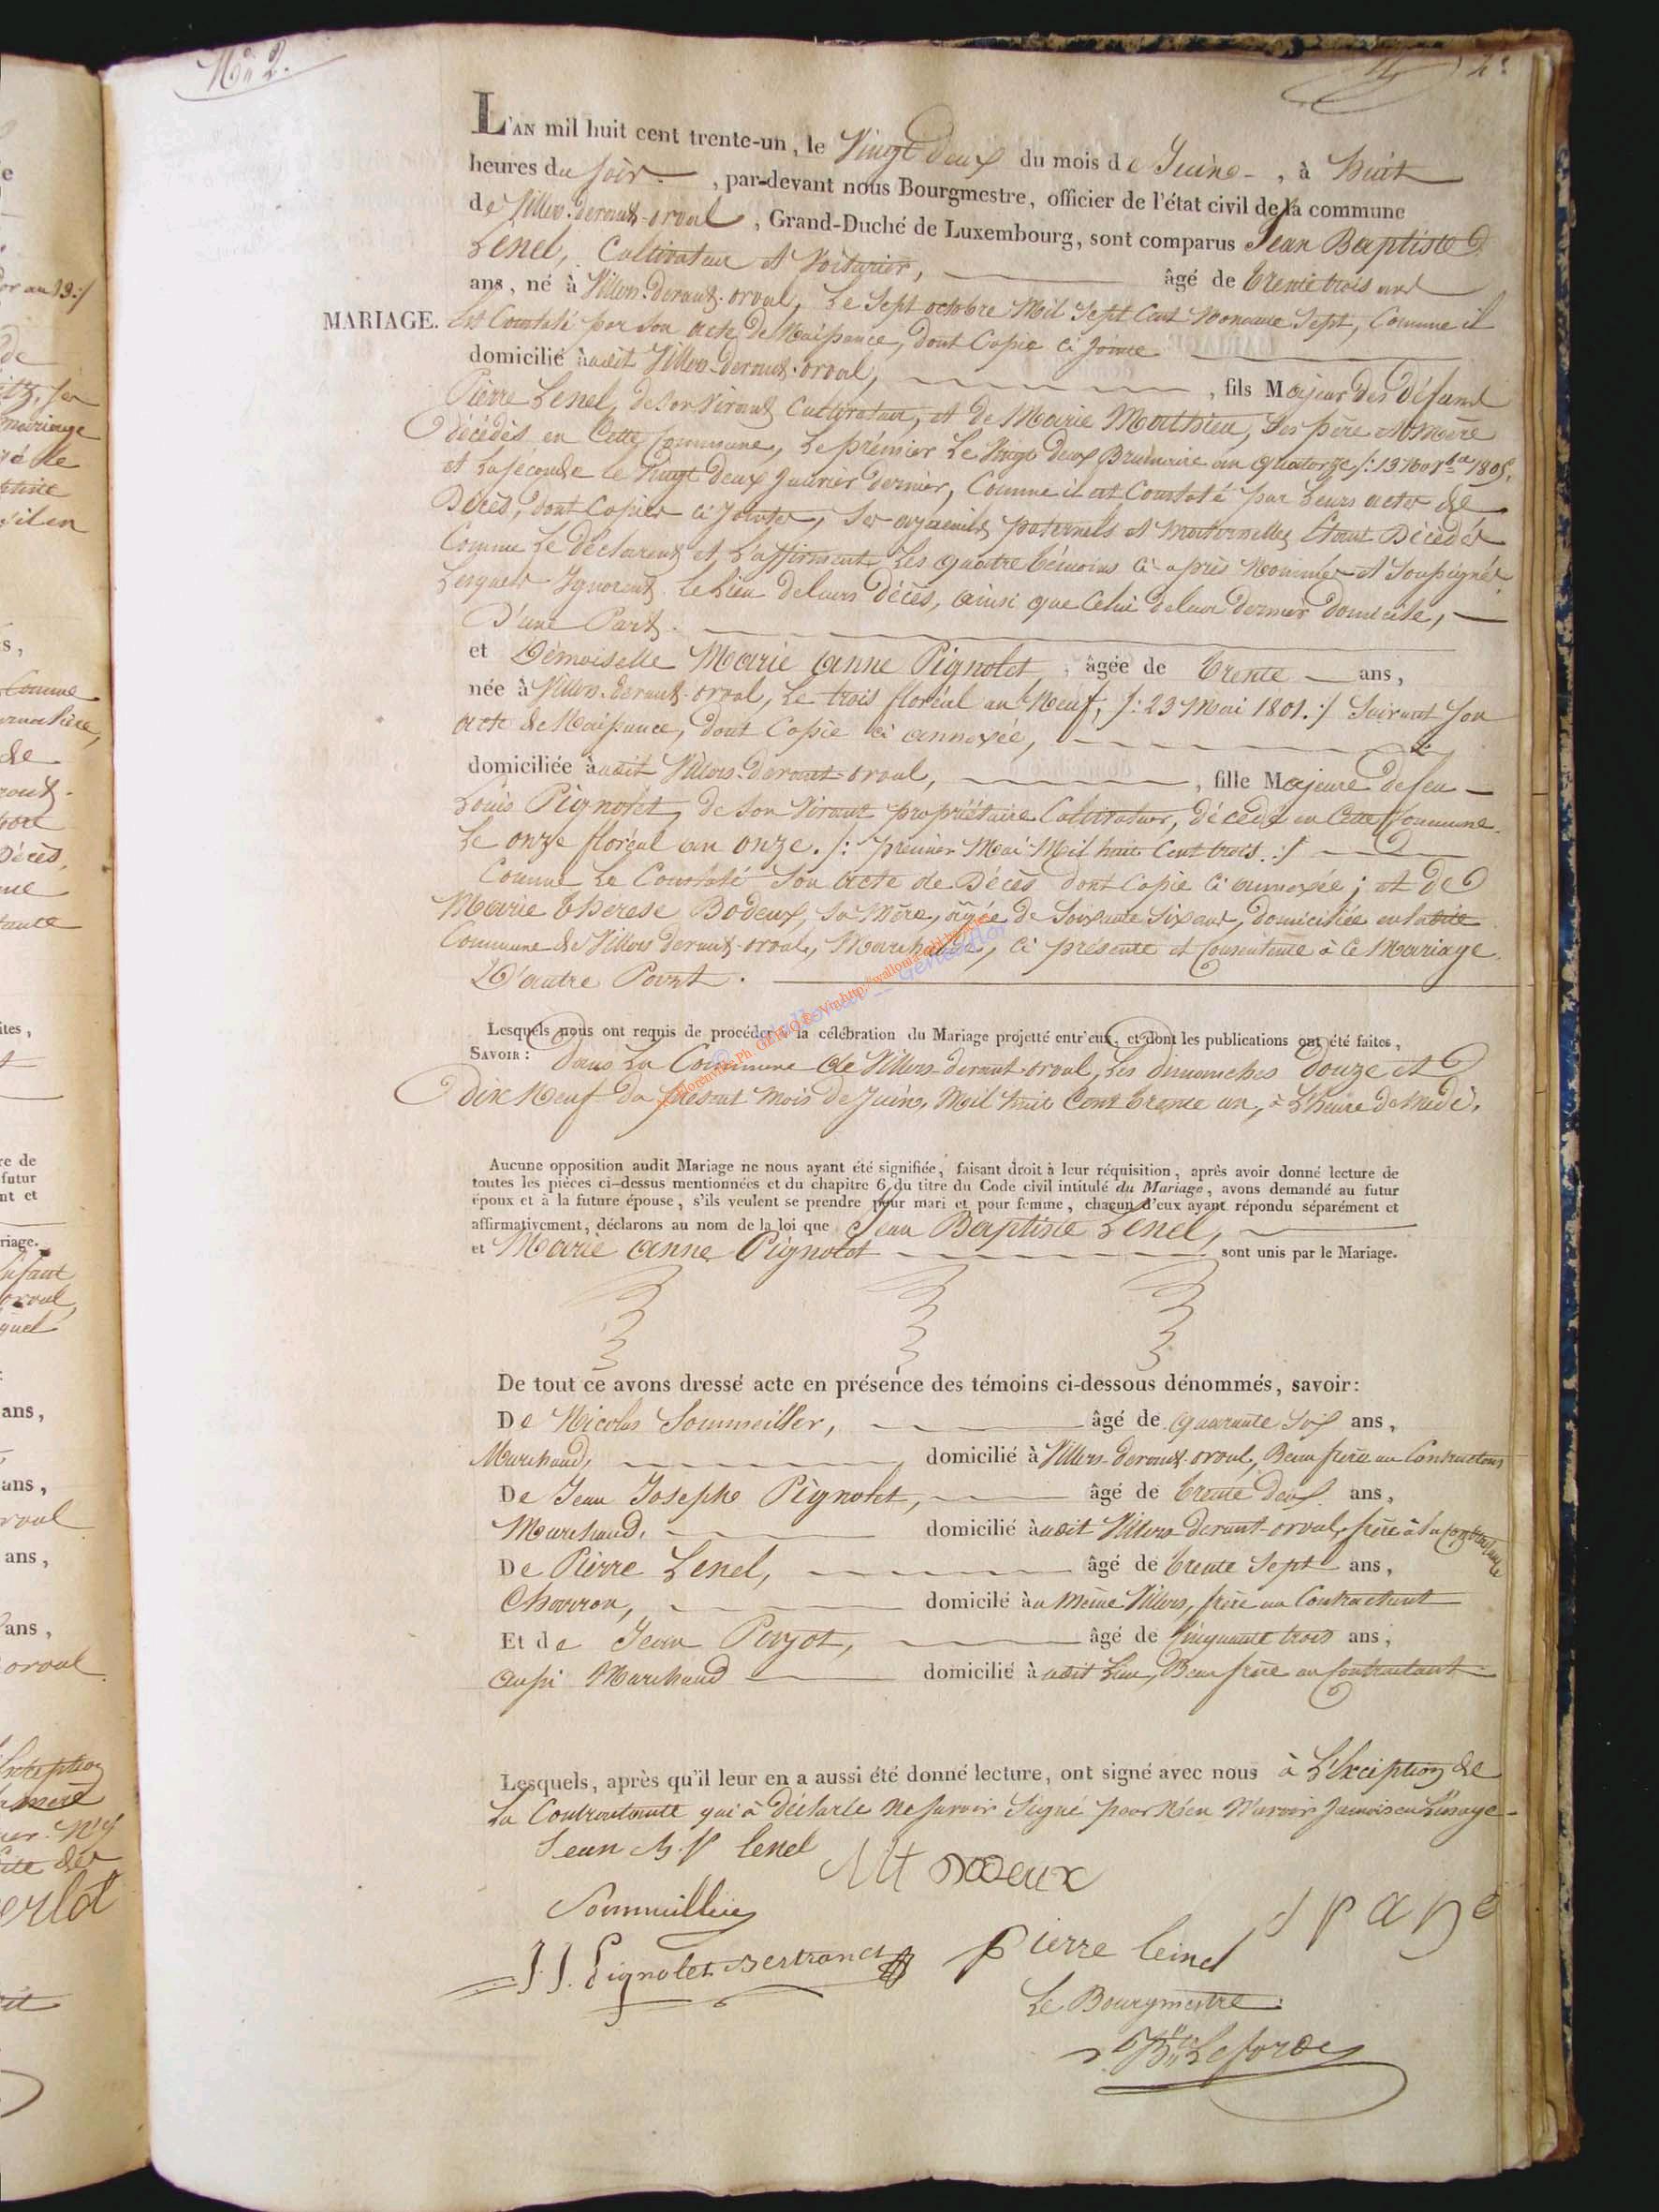 N° 2.
2.
L'AN mil huit cent trente-un, le Vingt deux du mois de Juin, à huit
heures du soir, par-devant nous Bourgmestre, officier de l'état civil de la commune
de Villers-devant-orval, Grand-Duché de Luxembourg, sont comparus Jean Baptiste
Lenel, Cultivateur et Voiturier, âgé de trente trois ans
ans, né à Villers-devant-orval, le Sept octobre Mil Sept Cent Nonante Sept, Comme il
MARIAGE.
Est Constaté par son acte de Naissance, dont Copie ci jointe
domicilié audit Villers-devant-orval, fils Majeur des défunts
Pierre Lenel, de son Vivant Cultivateur, et de Marie Mathieu, ses père et mère
décédés en Cette Commune, le prémier le Vingt deux Brumaire an quatorze /: 13 9bre 1805,
et la séconde le Vingt deux Janvier dernier, Comme il est Constaté par leurs actes de
Décès, dont Copies ci jointes, Ses ayeuils paternels et maternelles étant Décédés
Comme le déclarent et l'affirment les quatre témoins ci-après Nommés et Soussignés
Lesquels Ignorent le lieu de leurs Décès, ainsi que Celui de leur dernier domicile,
D'une Part.
et Démoiselle Marie anne Pignolet, âgée de trente ans,
née à Villers-devant-orval, le trois floréal an Neuf, /: 23 Mai 1801. :/ Suivant son
acte de Naissance, dont Copie ci annexée,
domiciliée audit Villers-devant-orval, fille Majeure de feu
Louis Pignolet, de son Vivant propriétaire Cultivateur, décédé en Cette Commune
le onze floréal an onze. /: prémier Mai Mil huit Cent trois. :/
Comme le Constaté son acte de Décès dont Copie ci annexée; et de
Marie therese Bodeux, sa Mère, âgée de Soixante Six ans, domiciliée en la dite
Commune de Villers devant-orval, Marchande, ci présente et Consentente à Ce Mariage
D'autre Part.
Lesquels nous ont requis de procéder à la célébration du Mariage projetté entr'eux, et dont les publications ont été faites,
SAVOIR: dans la Commune de Villers-devant-orval, les dimanches douze et
dix Neuf du présent Mois de Juin, Mil huit Cent trente un, à L'heure de Midi.
Aucune opposition audit Mariage ne nous ayant été signifiée, faisant droit à leur réquisition, après avoir donné lecture de
toutes les pièces ci-dessus mentionnées et du chapitre 6 du titre du Code civil intitulé du Mariage, avons demandé au futur
époux et à la future épouse, s'ils veulent se prendre pour mari et pour femme, chacun d'eux ayant répondu séparément et
affirmativement, déclarons au nom de la loi que Jean Baptiste Lenel,
et Marie anne Pignolet sont unis par le Mariage.
De tout ce avons dressé acte en présence des témoins ci-dessous dénommés, savoir:
De Nicolas Sommeiller, âgé de quarante Six ans,
Marchand, domicilié à Villers-devant-orval, Beau frère au Contractant
De Jean Josephe Pignolet, âgé de trente deux ans,
Marchand, domicilié audit Villers-devant-orval, frère à la Contractante
De Pierre Lenel, âgé de trente Sept ans,
Charron, domicilié au Même Villers, frère au Contractant
Et de Jean âgé de Cinquante trois ans,
aussi Marchand domicilié à udit Lieu, Beau frère au Contractant
Lesquels, après qu'il leur en a aussi été donné lecture, ont signé avec nous à L'éxception de
La Contractante qui à déclaré Ne savoir Signé pour N'en N'avoir Jamais eu L'usage
Jean B. t lenel
Mt Bodeux
Sommeillier
J. J. Pignolet Bertrand
pierre leinel
Le Bourgmestre: